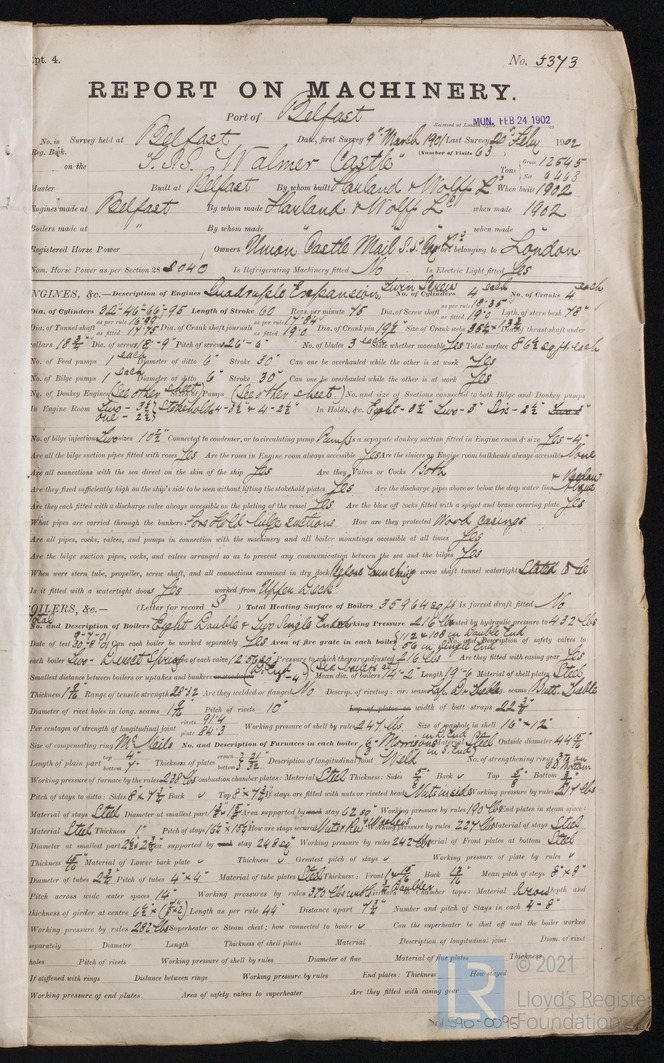 Rpt. 4. No. 5373
REPORT ON MACHINERY.
Port of Belfast
Received at London MON. FEB 24 1902
No. in Survey held at Belfast Date, first Survey 9th March 1901 Last Survey 20th Feby 1902
Reg. Book. (Number of Visits 63)
on the "S.S. "Walmer Castle" Tons Gross 12545
Net 6463
Master Built at Belfast By whom built Harland & Wolff Ld When built 1902
Engines made at Belfast By whom made Harland & Wolff Ld when made 1902
Boilers made at " By whom made " when made "
Registered Horse Power Owners Union Castle Mail S.S. Coy Ld Port belonging to London
Nom. Horse Power as per Section 28 2040 Is Refrigerating Machinery fitted No Is Electric Light fitted Yes
ENGINES, &c.—Description of Engines Quadruple Expansion Twin Screw No. of Cylinders 4 each No. of Cranks 4 each
Dia. of Cylinders 32"-46"-66"-95 Length of Stroke 60 Revs. per minute 75 Dia. of Screw shaft as per rule 18.35" as fitted 19.0 Lgth. of stern bush 76"
Dia. of Tunnel shaft as per rule as fitted 17.75 Dia. of Crank shaft journals as per rule 17.84 as fitted 19.0 Dia. of Crank pin 19½ Size of Crank webs Dia. of thrust shaft under
collars 18¾" Dia. of screw 18'-9" Pitch of screw 26'-6" No. of blades 3 each State whether moveable Yes Total surface 86½ sq ft each
No. of Feed pumps 1 each Diameter of ditto 6" Stroke 30" Can one be overhauled while the other is at work Yes
No. of Bilge pumps 1 each Diameter of ditto 6" Stroke 30" Can one be overhauled while the other is at work Yes
No. of Donkey Engines (See other sheet) Sizes of Pumps (See other sheet) No. and size of Suctions connected to both Bilge and Donkey pumps
In Engine Room Two-3½" Stokeholds 4-3½" & 4-2½" In Holds, &c. Eight-3½" Two-3" Six-2½"
One - 2½"
No. of bilge injections Two sizes 10½" Connected to condenser, or to circulating pump Pumps Is a separate donkey suction fitted in Engine room & size Yes-4"
Are all the bilge suction pipes fitted with roses Yes Are the roses in Engine room always accessible Yes Are the sluices on Engine room bulkheads always accessible None
Are all connections with the sea direct on the skin of the ship Yes Are they Valves or Cocks Both
Are they fixed sufficiently high on the ship's side to be seen without lifting the stokehold plates Yes Are the discharge pipes above or below the deep water line Below & Above
Are they each fitted with a discharge valve always accessible on the plating of the vessel Yes Are the blow off cocks fitted with a spigot and brass covering plate Yes
What pipes are carried through the bunkers Ford Hold bilge suctions How are they protected Wood casings
Are all pipes, cocks, valves, and pumps in connection with the machinery and all boiler mountings accessible at all times Yes
Are the bilge suction pipes, cocks, and valves arranged so as to prevent any communication between the sea and the bilges Yes
When were stern tube, propeller, screw shaft, and all connections examined in dry dock Before launching Is the screw shaft tunnel watertight Stated to be
Is it fitted with a watertight door Yes worked from Upper Deck
BOILERS, &c.— (Letter for record S) Total Heating Surface of Boilers 35964 sq ft Is forced draft fitted No
Total No. and Description of Boilers Eight Double & Two Single Ended Working Pressure 216 lbs Tested by hydraulic pressure to 432 lbs
Date of test 9-7-01 30-8-01 Can each boiler be worked separately Yes Area of fire grate in each boiler 112 & 108 in Double End 56 in Single End No. and Description of safety valves to
each boiler Two - Direct Spring Area of each valve Pressure to which they are adjusted 216 lbs Are they fitted with easing gear Yes
Smallest distance between boilers or uptakes and bunkers Mean dia. of boilers 14'-2" Length 19'-6 Material of shell plates Steel
Thickness Range of tensile strength 28-32 Are they welded or flanged No Descrip. of riveting: cir. seams Lap Do Treble long. seams Butt Treble
Diameter of rivet holes in long. seams Pitch of rivets 10" Lap of plates or width of butt straps 22¾"
Per centages of strength of longitudinal joint rivets 91.4 plate 84.3 Working pressure of shell by rules 247 lbs Size of manhole in shell 16" x 12"
Size of compensating ring McNeils No. and Description of Furnaces in each boiler 6 Morrisons in D. End 3 in S. End Material Steel Outside diameter
Length of plain part top bottom Thickness of plates crown bottom Description of longitudinal joint Weld No. of strengthening rings
Working pressure of furnace by the rules 238 lbs Combustion chamber plates: Material Steel Thickness: Sides Back Top Bottom
Pitch of stays to ditto: Sides 8" x 7¾" Back Top 8" x 7¾" If stays are fitted with nuts or riveted heads Nuts inside Working pressure by rules 217 lbs
Material of stays Steel Diameter at smallest part Area supported by each stay 62 sq" Working pressure by rules 190 lbs End plates in steam space:
Material Steel Thickness 1" Pitch of stays How are stays secured Nuts & Riv Washers Working pressure by rules 227 lbs Material of stays Steel
Diameter at smallest part Area supported by each stay 248 sq" Working pressure by rules 242 lbs Material of Front plates at bottom Steel
Thickness Material of Lower back plate Thickness Greatest pitch of stays Working pressure of plate by rules
Diameter of tubes 2¾" Pitch of tubes 4" x 4" Material of tube plates Steel Thickness: Front Back Mean pitch of stays 8" x 8"
Pitch across wide water spaces 14" Working pressures by rules 370 lbs with Doubler Girders to Chamber tops: Material Iron Depth and
thickness of girder at centre Length as per rule 44" Distance apart 7¾" Number and pitch of Stays in each 4-8"
Working pressure by rules 282 lbs Superheater or Steam chest; how connected to boiler Can the superheater be shut off and the boiler worked
separately Diameter Length Thickness of shell plates Material Description of longitudinal joint Diam. of rivet
holes Pitch of rivets Working pressure of shell by rules Diameter of flue Material of flue plates Thickness
If stiffened with rings Distance between rings Working pressure by rules End plates: Thickness How stayed
Working pressure of end plates Area of safety valves to superheater Are they fitted with easing gear
LR © 2021
Lloyd's Register
Foundation
W590-0095